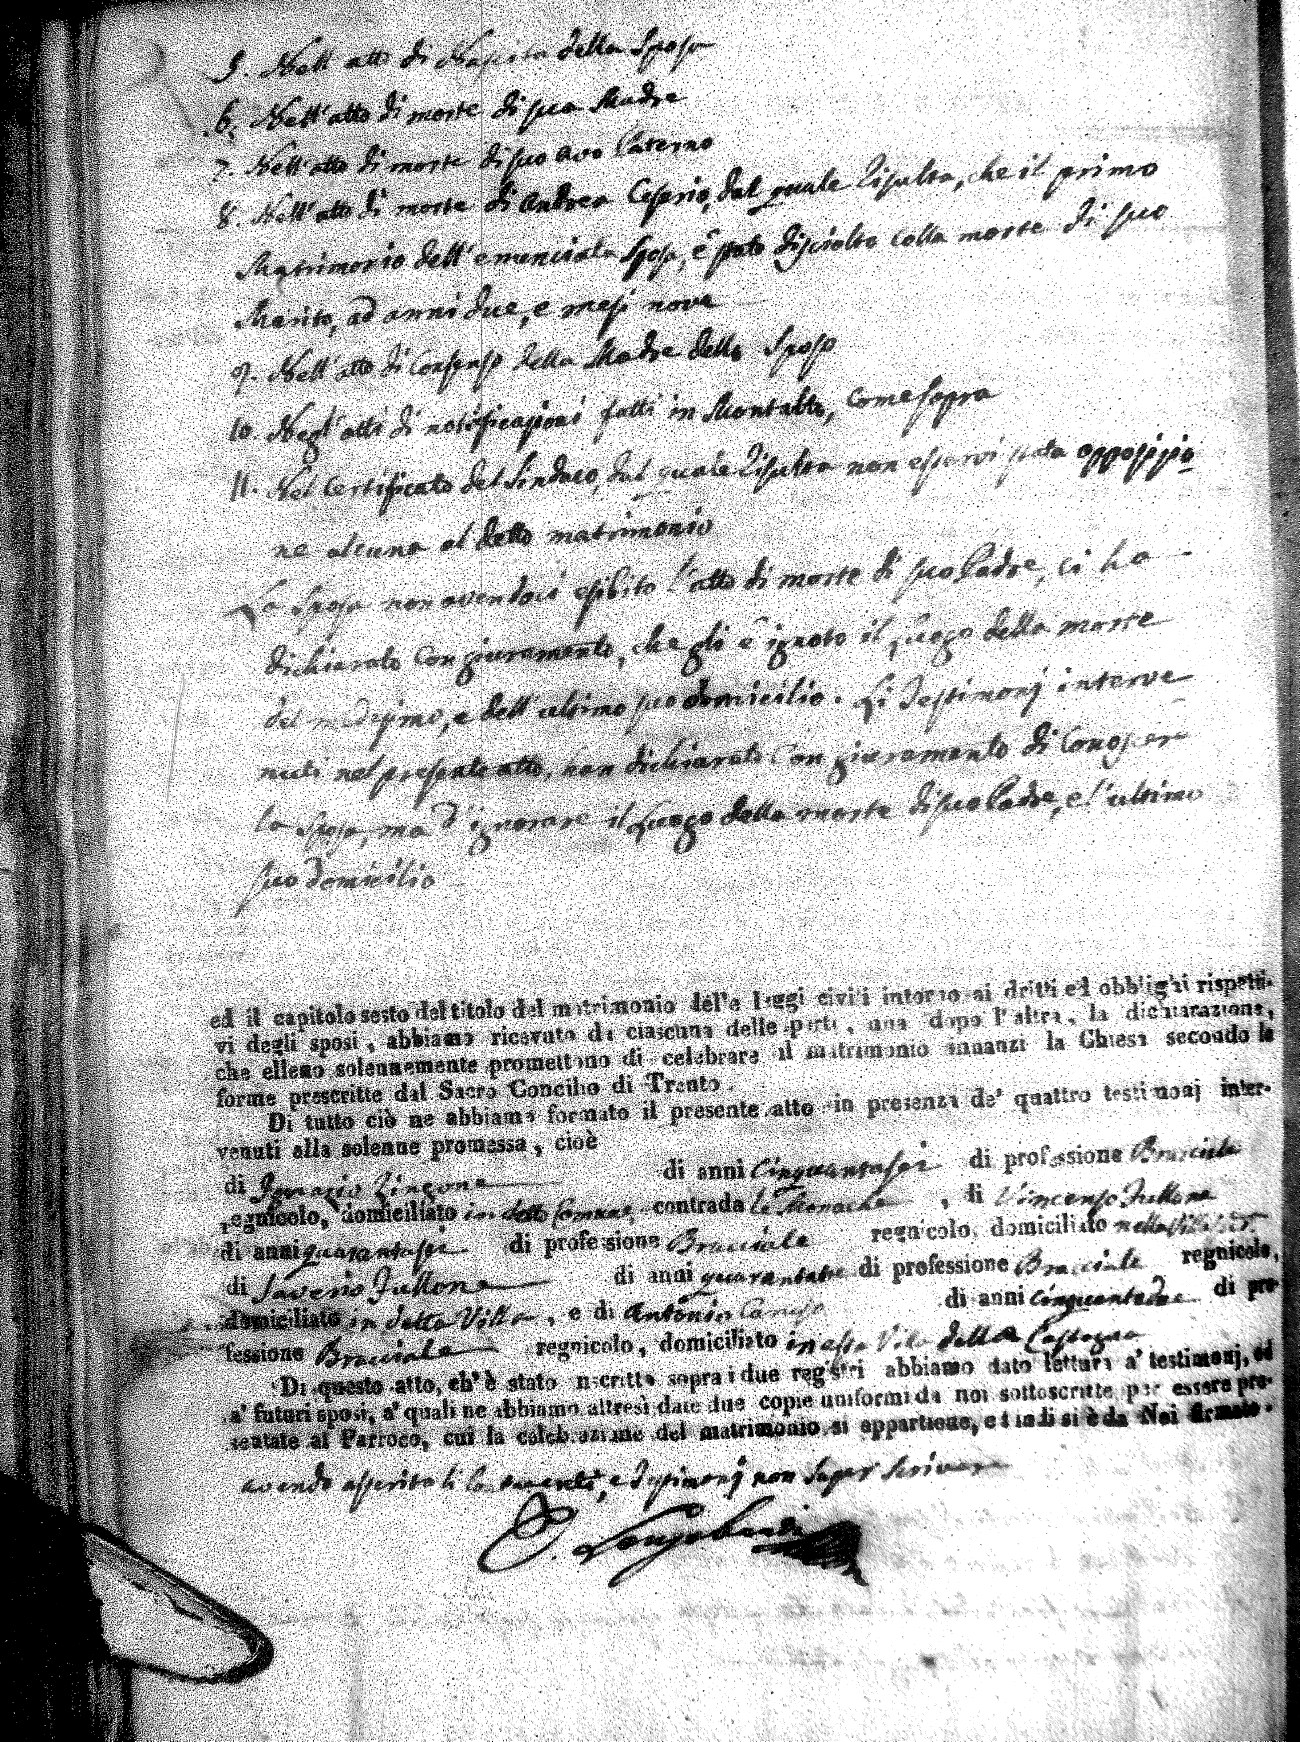 5. Nell'atto di Nascita della Sposa
6. Nell'atto di morte di sua Madre
7. Nell'atto di morte di suo avo Paterno
8. Nell'atto di morte di Andrea dal quale risulta, che il primo
Matrimonio dell'enunciata Sposa, è stato disciolto colla morte di suo
Marito, ad anni due, e mesi nove
9. Nell'atto di Consenso della Madre dello Sposo
10. Negl'atti di notificazioni fatti in Montalto, come sopra
11. Nel Certificato del Sindaco, dal quale risulta non esservi stata opposizio
ne alcuna al detto matrimonio
La Sposa non avendoci esibito l'atto di morte di suo Padre, ci ha
dichiarato con giuramento, che gli è ignoto il Luogo della morte
del medesimo, e dell'ultimo suo domicilio. Li Testimonj interve
nuti nel presente atto, han dichiarato con giuramento di conoscer
la Sposa, ma d'ignorare il Luogo della morte di suo Padre, e l'ultimo
suo domicilio
ed il capitolo sesto del titolo del matrimonio delle leggi civili intorno ai dritti ed obblighi rispetti-
vi degli sposi, abbiamo ricevuto da ciascuna delle parti, una dopo l'altra, la dichiarazione,
che elleno solennemente promettono di celebrare il matrimonio innanzi la Chiesa secondo le
forme prescritte dal Sacro Concilio di Trento.
Di tutto ciò ne abbiamo formato il presente atto in presenza de' quattro testimonj inter-
venuti alla solenne promessa, cioè
di Ignazio Zingone di anni Cinquantasei di professione Bracciale
regnicolo, domiciliato in detto Comune, contrada le Monache, di Vincenzo Fullone
di anni quarantasei di professione Bracciale regnicolo, domiciliato
di Saverio Fullone di anni quarantatre di professione Bracciale regnicolo,
domiciliato in detta Villa, e di Antonio Caruso di anni cinquantadue di pro-
fessione Bracciale regnicolo, domiciliato in essa Villa della Castagna
Di questo atto, ch'è stato inscritto sopra i due registri abbiamo dato lettura a' testimonj, ed
a' futuri sposi, a' quali ne abbiamo altresì date due copie uniformi da noi sottoscritte per essere pre-
sentate al Parroco, cui la celebrazione del matrimonio si appartiene, e indi si è da Noi firmato.
avendo asserito li contraenti, e Testimonj non saper scrivere